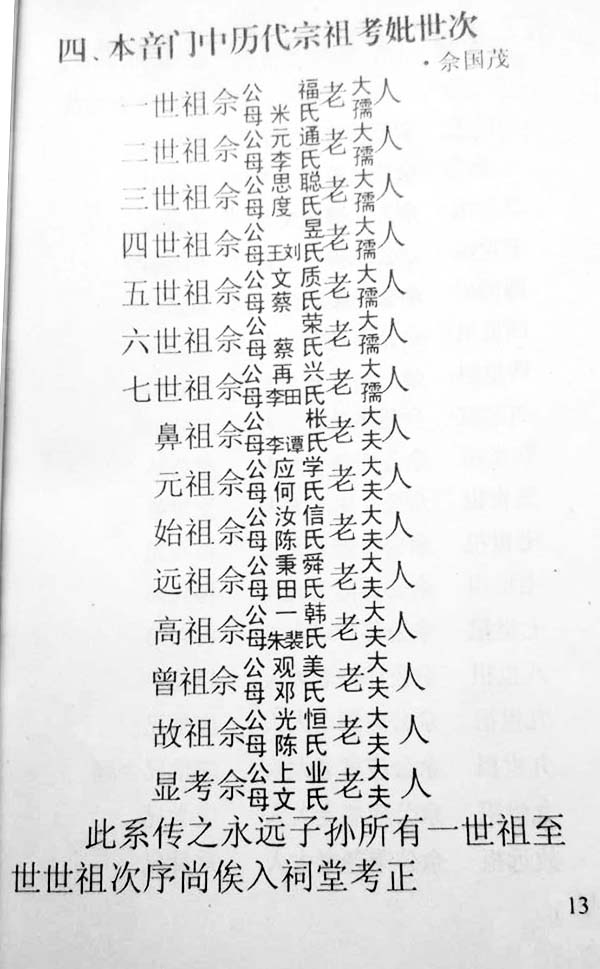 四、本音门中历代宗祖考妣世次
·佘国茂
一世祖佘公福母米氏老大孺人
二世祖佘公元通母李氏老大孺人
三世祖佘公思聪母度氏老大孺人
四世祖佘公昱母王刘氏老大孺人
五世祖佘公文质母蔡氏老大孺人
六世祖佘公荣母蔡氏老大孺人
七世祖佘公再兴母李田氏老大孺人
鼻祖佘公枨母李谭氏老大夫人
元祖佘公应学母何氏老大夫人
始祖佘公汝信母陈氏老大夫人
远祖佘公秉舜母田氏老大夫人
高祖佘公一韩母朱裴氏老大夫人
曾祖佘公观美母邓氏老大夫人
故祖佘公光恒母陈氏老大夫人
显考佘公上业母文氏老大夫人
此系传之永远子孙所有一世祖至
世世祖次序尚俟入祠堂考正
13